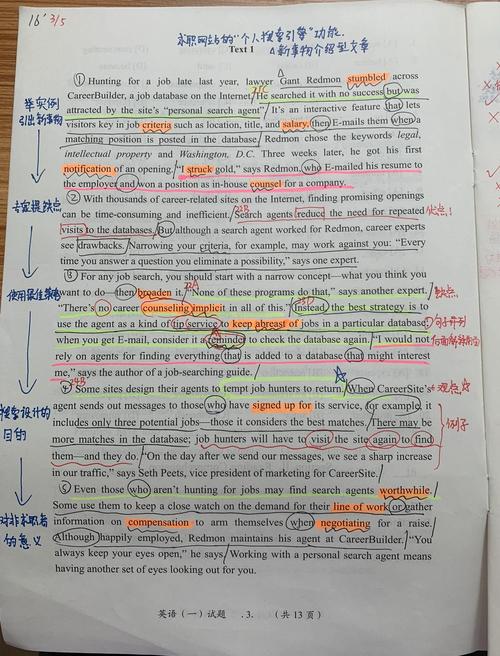 16' 3/5
求职网站的"个人搜索引擎"功能.
Text 1
△新事物介绍型文章
① Hunting for a job late last year, lawyer Gant Redmon stumbled across
CareerBuilder, a job database on the Internet. He searched it with no success but was
attracted by the site's "personal search agent". It's an interactive feature that lets
visitors key in job criteria such as location, title, and salary, then E-mails them when a
matching position is posted in the database. Redmon chose the keywords legal,
intellectual property and Washington, D.C. Three weeks later, he got his first
notification of an opening. "I struck gold," says Redmon, who E-mailed his resume to
the employer and won a position as in-house counsel for a company.
举实例
引出新事物
② With thousands of career-related sites on the Internet, finding promising openings
can be time-consuming and inefficient. Search agents reduce the need for repeated
visits to the databases. But although a search agent worked for Redmon, career experts
see drawbacks. Narrowing your criteria, for example, may work against you: "Every
time you answer a question you eliminate a possibility," says one expert.
优点!
③ For any job search, you should start with a narrow concept—what you think you
want to do—then broaden it. "None of these programs do that," says another expert.
"There's no career counseling implicit in all of this." Instead, the best strategy is to
use the agent as a kind of tip service to keep abreast of jobs in a particular database;
when you get E-mail, consider it a reminder to check the database again. "I would not
rely on agents for finding everything that is added to a database that might interest
me," says the author of a job-searching guide.
缺点
④ Some sites design their agents to tempt job hunters to return. When CareerSite's
agent sends out messages to those who have signed up for its service, for example, it
includes only three potential jobs—those it considers the best matches. There may be
more matches in the database; job hunters will have to visit the site again to find
them—and they do. "On the day after we send our messages, we see a sharp increase
in our traffic," says Seth Peets, vice president of marketing for CareerSite.
24B
观点
例子
设计的
目的
⑤ Even those who aren't hunting for jobs may find search agents worthwhile.
Some use them to keep a close watch on the demand for their line of work or gather
information on compensation to arm themselves when negotiating for a raise.
Although happily employed, Redmon maintains his agent at CareerBuilder. "You
always keep your eyes open," he says. Working with a personal search agent means
having another set of eyes looking out for you.
对非求职者
的意义
英语(一)试题 .3. (共13页)